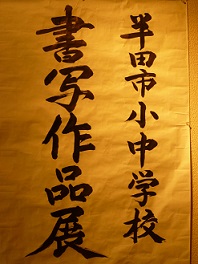 半田市小中学校
書写作品展